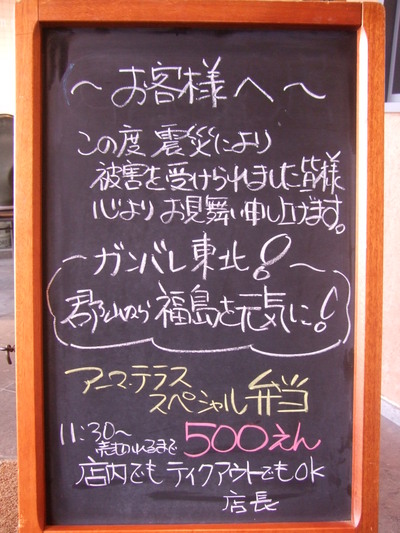 ～お客様へ～
この度 震災により
被害を受けられました皆様
心よりお見舞い申し上げます。
～ガンバレ東北！～
郡山から福島を元気に！
アニマ・テラス
スペシャル弁当
11:30～
売り切れるまで 500えん
店内でもテイクアウトでもOK
店長